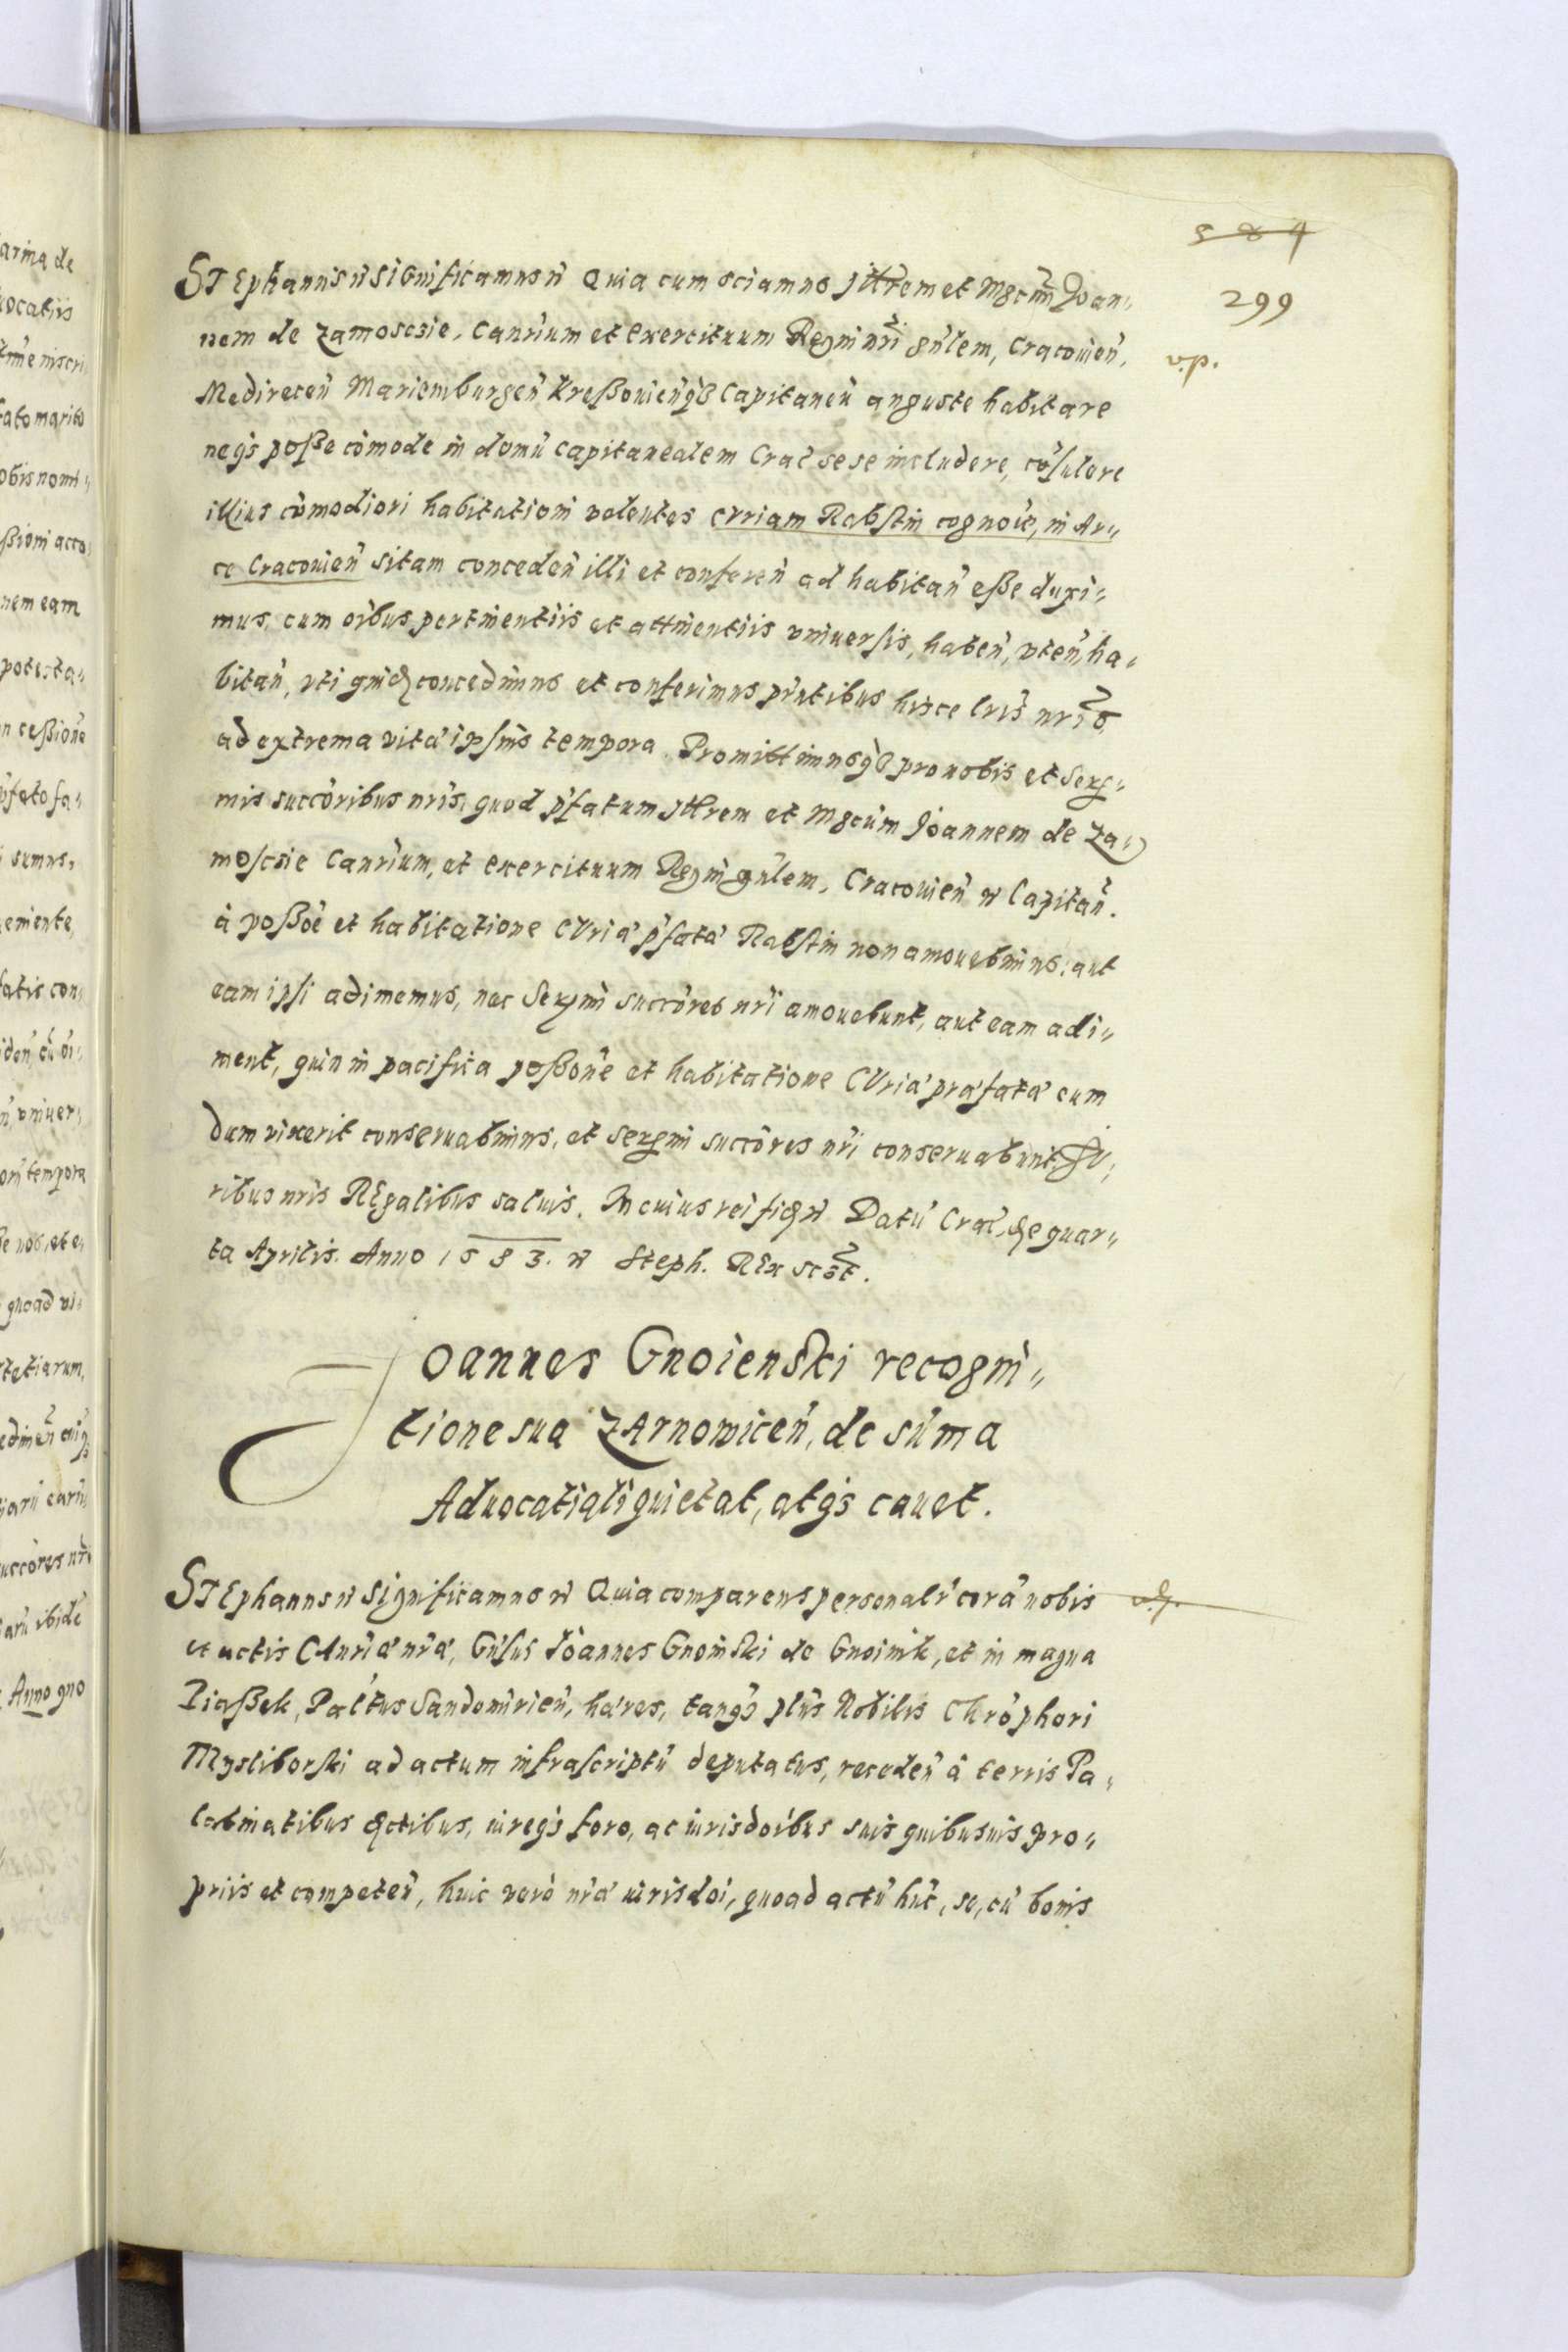 584
299
STEphanus etc SiGnificamus etc Quia cum sciamus Illrem et Mgcum Joan„
nem de Zamoscie, Canrium et Exercituum Regni nri gnlem, Cracouien̄,
v.p.
Medirecen̄ Mariemburgen̄ Kreßouien̄q3 Capitaneū anguste habitare
neq3 poße cōmode in domū Capitanealem Crac̄ sese includere, cōsulere
illius cōmodiori habitationi volentes cvriam Rabſtin cognoīe, in Ar„
ce Cracouien̄ sitam conceden̄ illi et conferen̄ ad habitan̄ eße duxi„
mus, cum oībus pertinentiis et attinentiis vniuerſis, haben̄, vten̄, ha„
bitan̄, vti quidē concedimus et conferimus pn̄tibus hisce lris nris
ad extrema vitæ ipſius tempora. Promittimusq3 pro nobis et Serꝫ„
mis succōribus nris, quod pfatum Illrem et Mgcum Joannem de Za„
moſcie Canrium, et exercituum Regni gnlem, Cracouien̄ etc Capitan̄.
à poßoē et habitatione CVriæ pfatæ Rabſtin non amouebimus, aut
eam ipſi adimemus, nec Serꝫmi succōres nri amouebunt, aut eam adi„
ment, quin in pacifica poßone et habitatione CVriæ præfatæ eum
dum vixerit conseruabimus, et serꝫmi succōres nri conseruabunt, Ju„
ribus nris REgalibus saluis. In cuius rei fidē etc Datū Crac̄, die quar„
ta Aprilis. Anno 1583. etc Steph. REx scst.
Joannes Gnoienski recogni„
tione sua ZArnowicen̄, de sūma
Aduocatiali quietat, atq3 cauet.
STEphanus etc Significamus etc Quia comparens personalr corā nobis
v.p.
et actis CAnriæ nræ, Gnſus Joannes Gnoinski de Gnoinik, et in magna
Piaßek, Palt̄us Sandomirien̄, hæres, tanq3 pln̄s Nobilis Chrōphori
Mysliborſki ad actum infraſcriptū deputatus, receden̄ à terris Pa„
latinatibus dictibus, iureq3 foro, ac iurisdoībus suis quibusuis pro„
priis et competen̄, huic vero nræ iurisdoi, quoad actū hūc, se, cū bonis